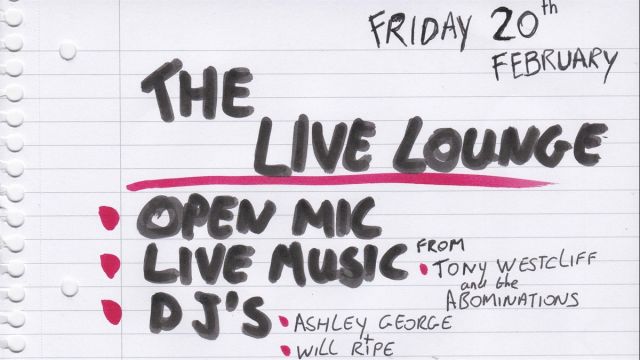 FRIDAY 20th
FEBRUARY
THE
LIVE LOUNGE
OPEN MIC
LIVE MUSIC FROM
TONY WESTCLIFF
and the
ABOMINATIONS
DJ'S
ASHLEY GEORGE
+
WILL RIPE